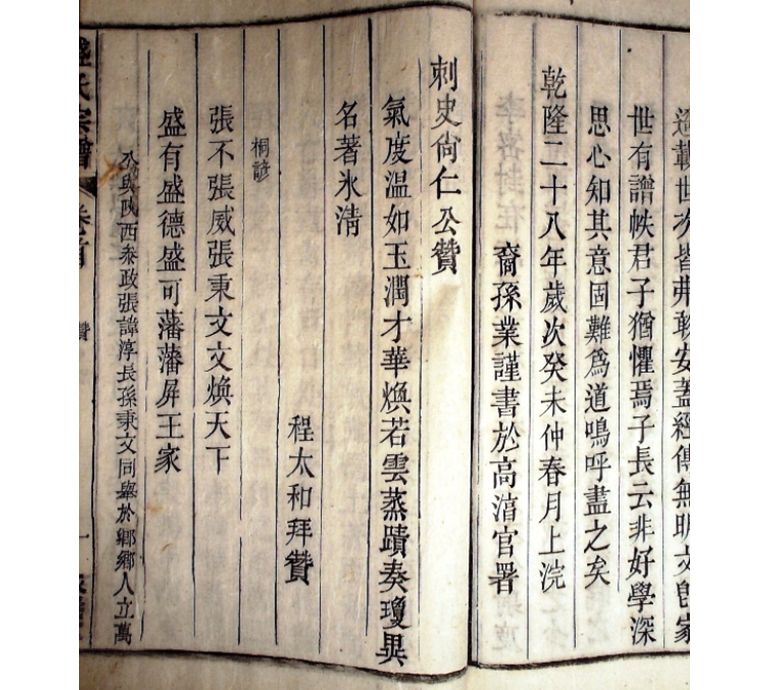 世次皆弗敢安蓋經傳無明文卽家
世有譜帙君子猶懼焉子長云非好學深
思心知其意固難為道嗚呼盡之矣
乾隆二十八年歲次癸未仲春月上浣
裔孫業謹書於高淯官署
刺史尙仁公贊
氣度溫如玉潤才華煥若雲蒸蹟奏瓊異
名著氷清
程太和拜贊
桐諺
張不張威張秉文文煥天下
盛有盛德盛可藩藩屛王家
公與陝西叅政張諱淳長孫秉文同舉於鄉鄉人立萬
盛氏宗譜 卷首 贊 一